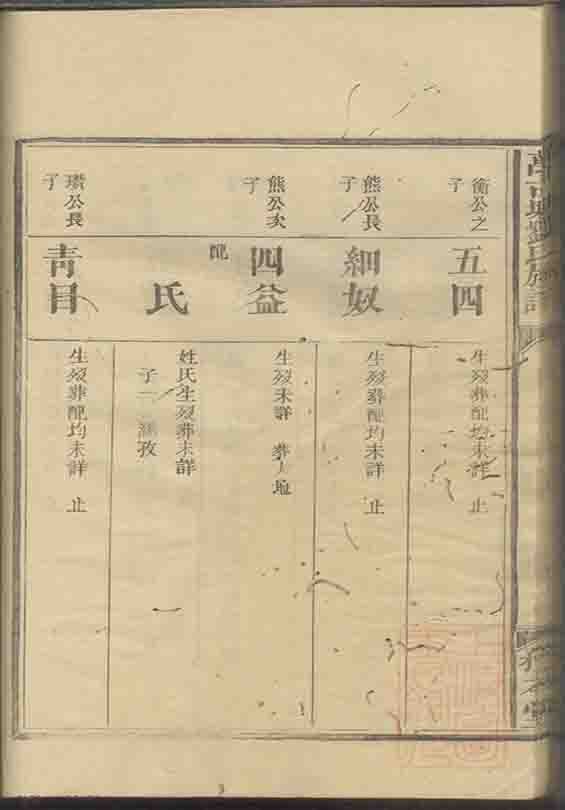 衡公之
子
五四
生歿葬配均未詳 止
熊公長
子
細奴
生歿葬配均未詳 止
熊公次
子
四益
生歿未詳 葬
配
氏
姓氏生歿葬未詳
子一
孜
公長
子
青目
生歿葬配均未詳 止